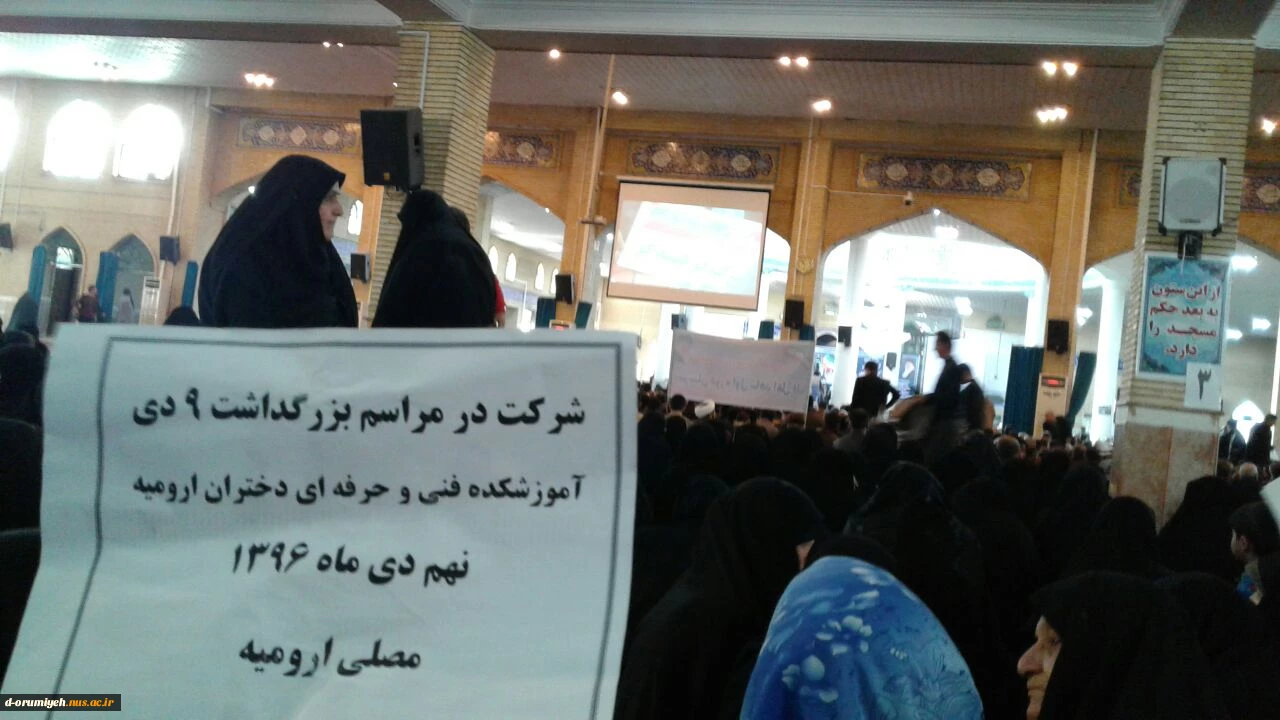 شرکت در مراسم بزرگداشت ۹ دی
آموزشکده فنی و حرفه ای دختران ارومیه
نهم دی ماه ۱۳۹۶
مصلی ارومیه
از این ستون
به بعد حکم
مسجد را
دارد.
۳
d-orumiyeh.nus.ac.ir